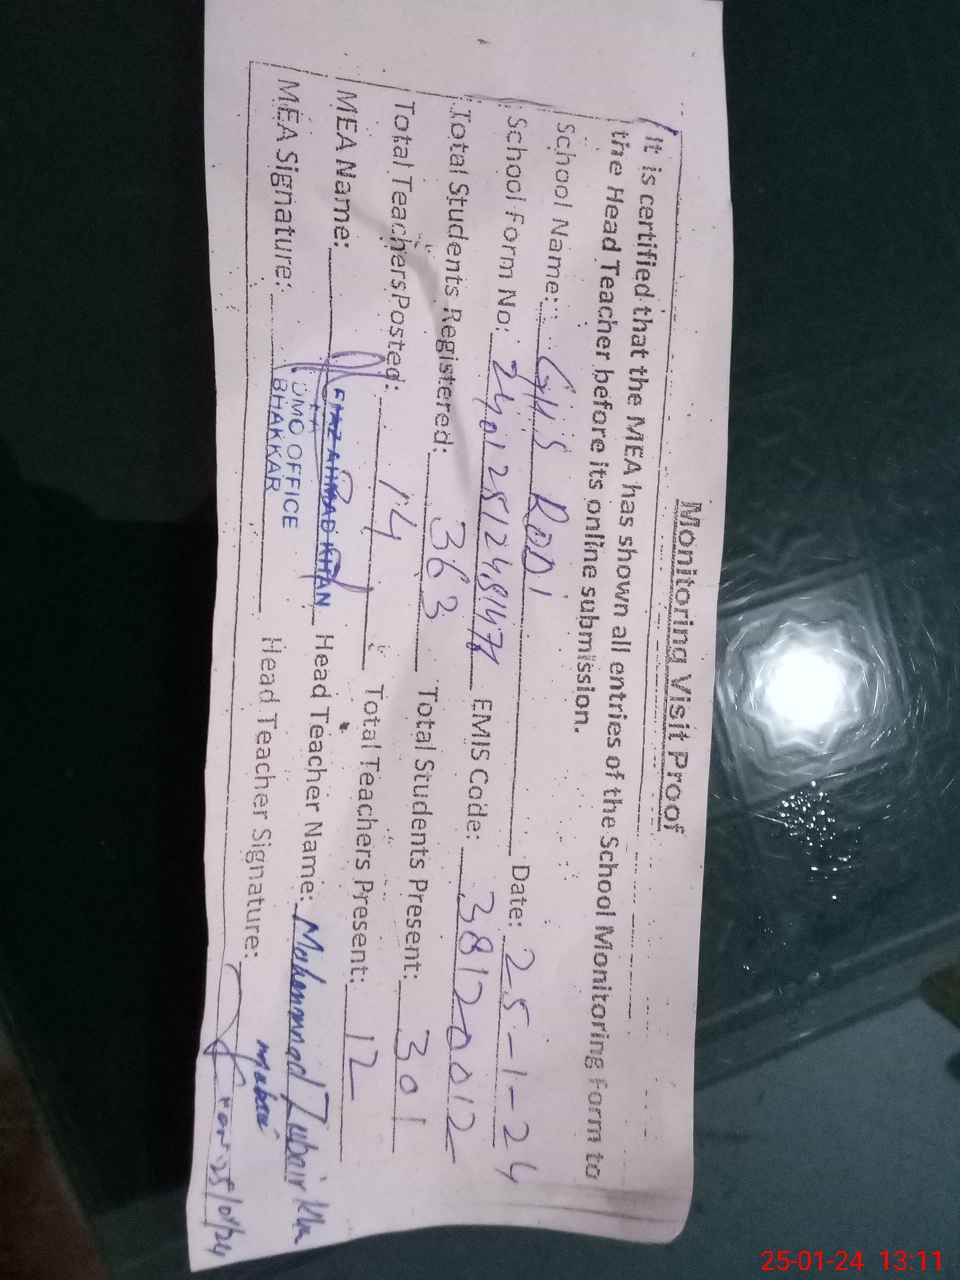 Monitoring Visit Proof
It is certified that the MEA has shown all entries of the School Monitoring Form to
the Head Teacher before its online submission.
School Name: GHS RODI Date: 25-1-24
School Form No: EMIS Code: 38120012
Total Students Registered: 363 Total Students Present: 301
Total Teachers Posted: 14 Total Teachers Present: 12
MEA Name: FIAZ AHMAD KHAN Head Teacher Name: Mohammad Zubair Kha
MEA Signature: DMO OFFICE BHAKKAR Head Teacher Signature: 25/01/24
25-01-24 13:11